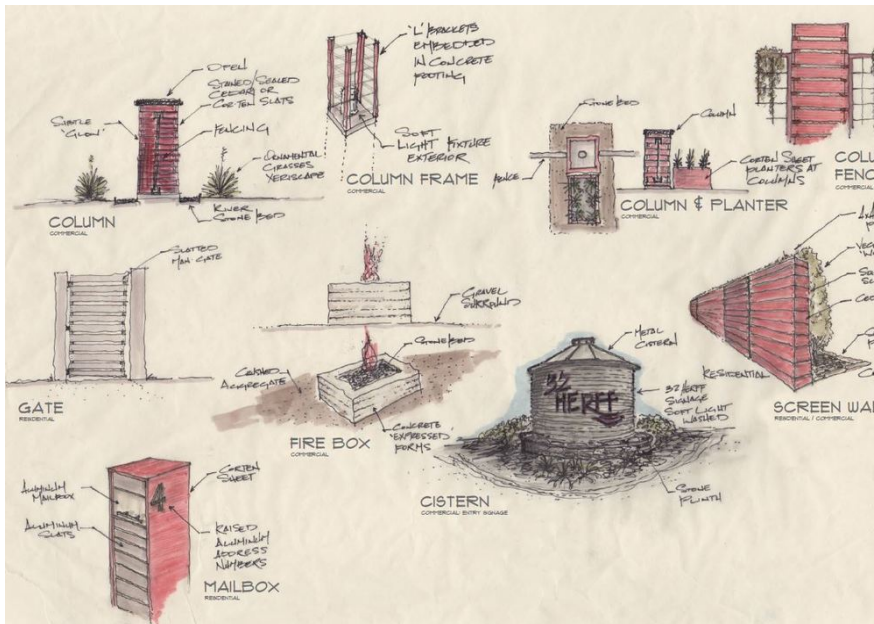 OPEN
STAINED/SEALED
CEDAR OR
CORTEN SLATS
SUBTLE
"GLOW"
FENCING
ORNAMENTAL
GRASSES
XERISCAPE
RIVER
STONE BED
COLUMN
COMMERCIAL
"L" BRACKETS
EMBEDDED
IN CONCRETE
FOOTING
SOFT
LIGHT FIXTURE
EXTERIOR
COLUMN FRAME
COMMERCIAL
STONE BED
COLUMN
FENCE
CORTEN SHEET
PLANTERS AT
COLUMNS
COLUMN & PLANTER
COMMERCIAL
COLU
FENC
COMMERCIAL
SLATTED
MAN GATE
GATE
RESIDENTIAL
GRAVEL
SURROUND
STONE BED
CRUSHED
AGGREGATE
CONCRETE
"EXPRESSED"
FORMS
FIRE BOX
COMMERCIAL
METAL
CISTERN
32 HERFF
32 HERFF
SIGNAGE
SOFT LIGHT
WASHED
STONE
PLINTH
CISTERN
COMMERCIAL ENTRY SIGNAGE
RESIDENTIAL
SCREEN WA
RESIDENTIAL / COMMERCIAL
CORTEN
SHEET
ALUMINUM
MAILBOX
ALUMINUM
SLATS
4
RAISED
ALUMINUM
ADDRESS
NUMBERS
MAILBOX
RESIDENTIAL